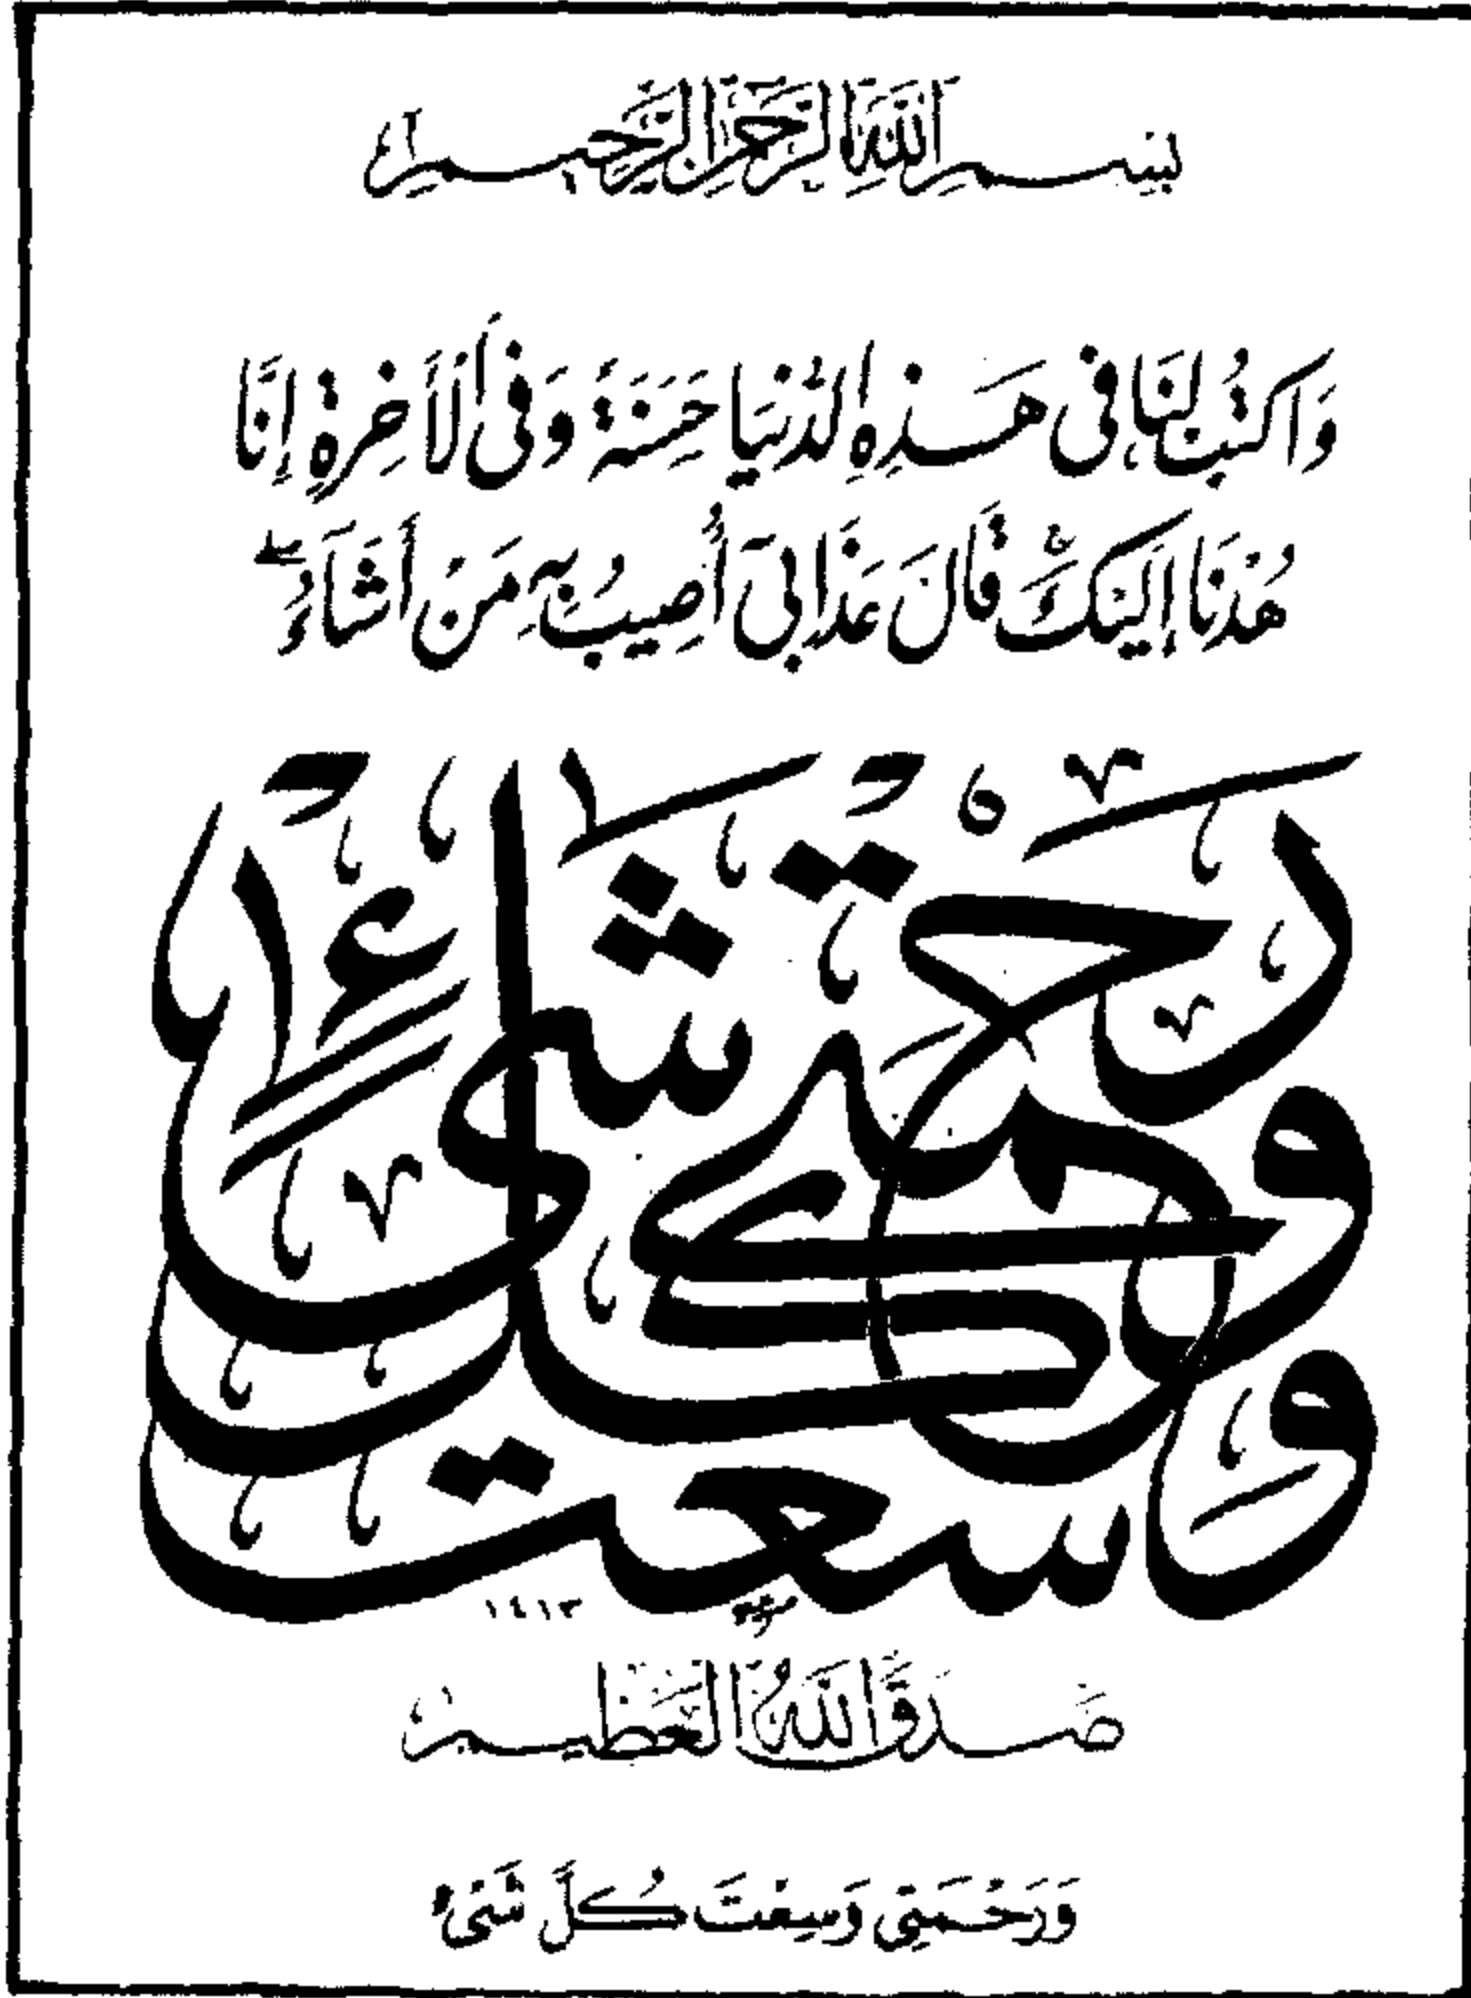 بِسْمِ اللَّهِ الرَّحْمَٰنِ الرَّحِيمِ
وَاكْتُبْ لَنَا فِى هَـذِهِ الدُّنْيَا حَسَنَةً وَفِى الْأَخِرَةِ إِنَّا
هُدْنَا إِلَيْكَ قَالَ عَذَابِىٓ أُصِيبُ بِهِ مَنْ أَشَآءُ
وَرَحْمَتِى وَسِعَتْ كُلَّ شَىْءٍ
١٤١٣
صَدَقَ اللَّهُ الْعَظِيمُ
وَرَحْمَتِى وَسِعَتْ كُلَّ شَىْءٍ